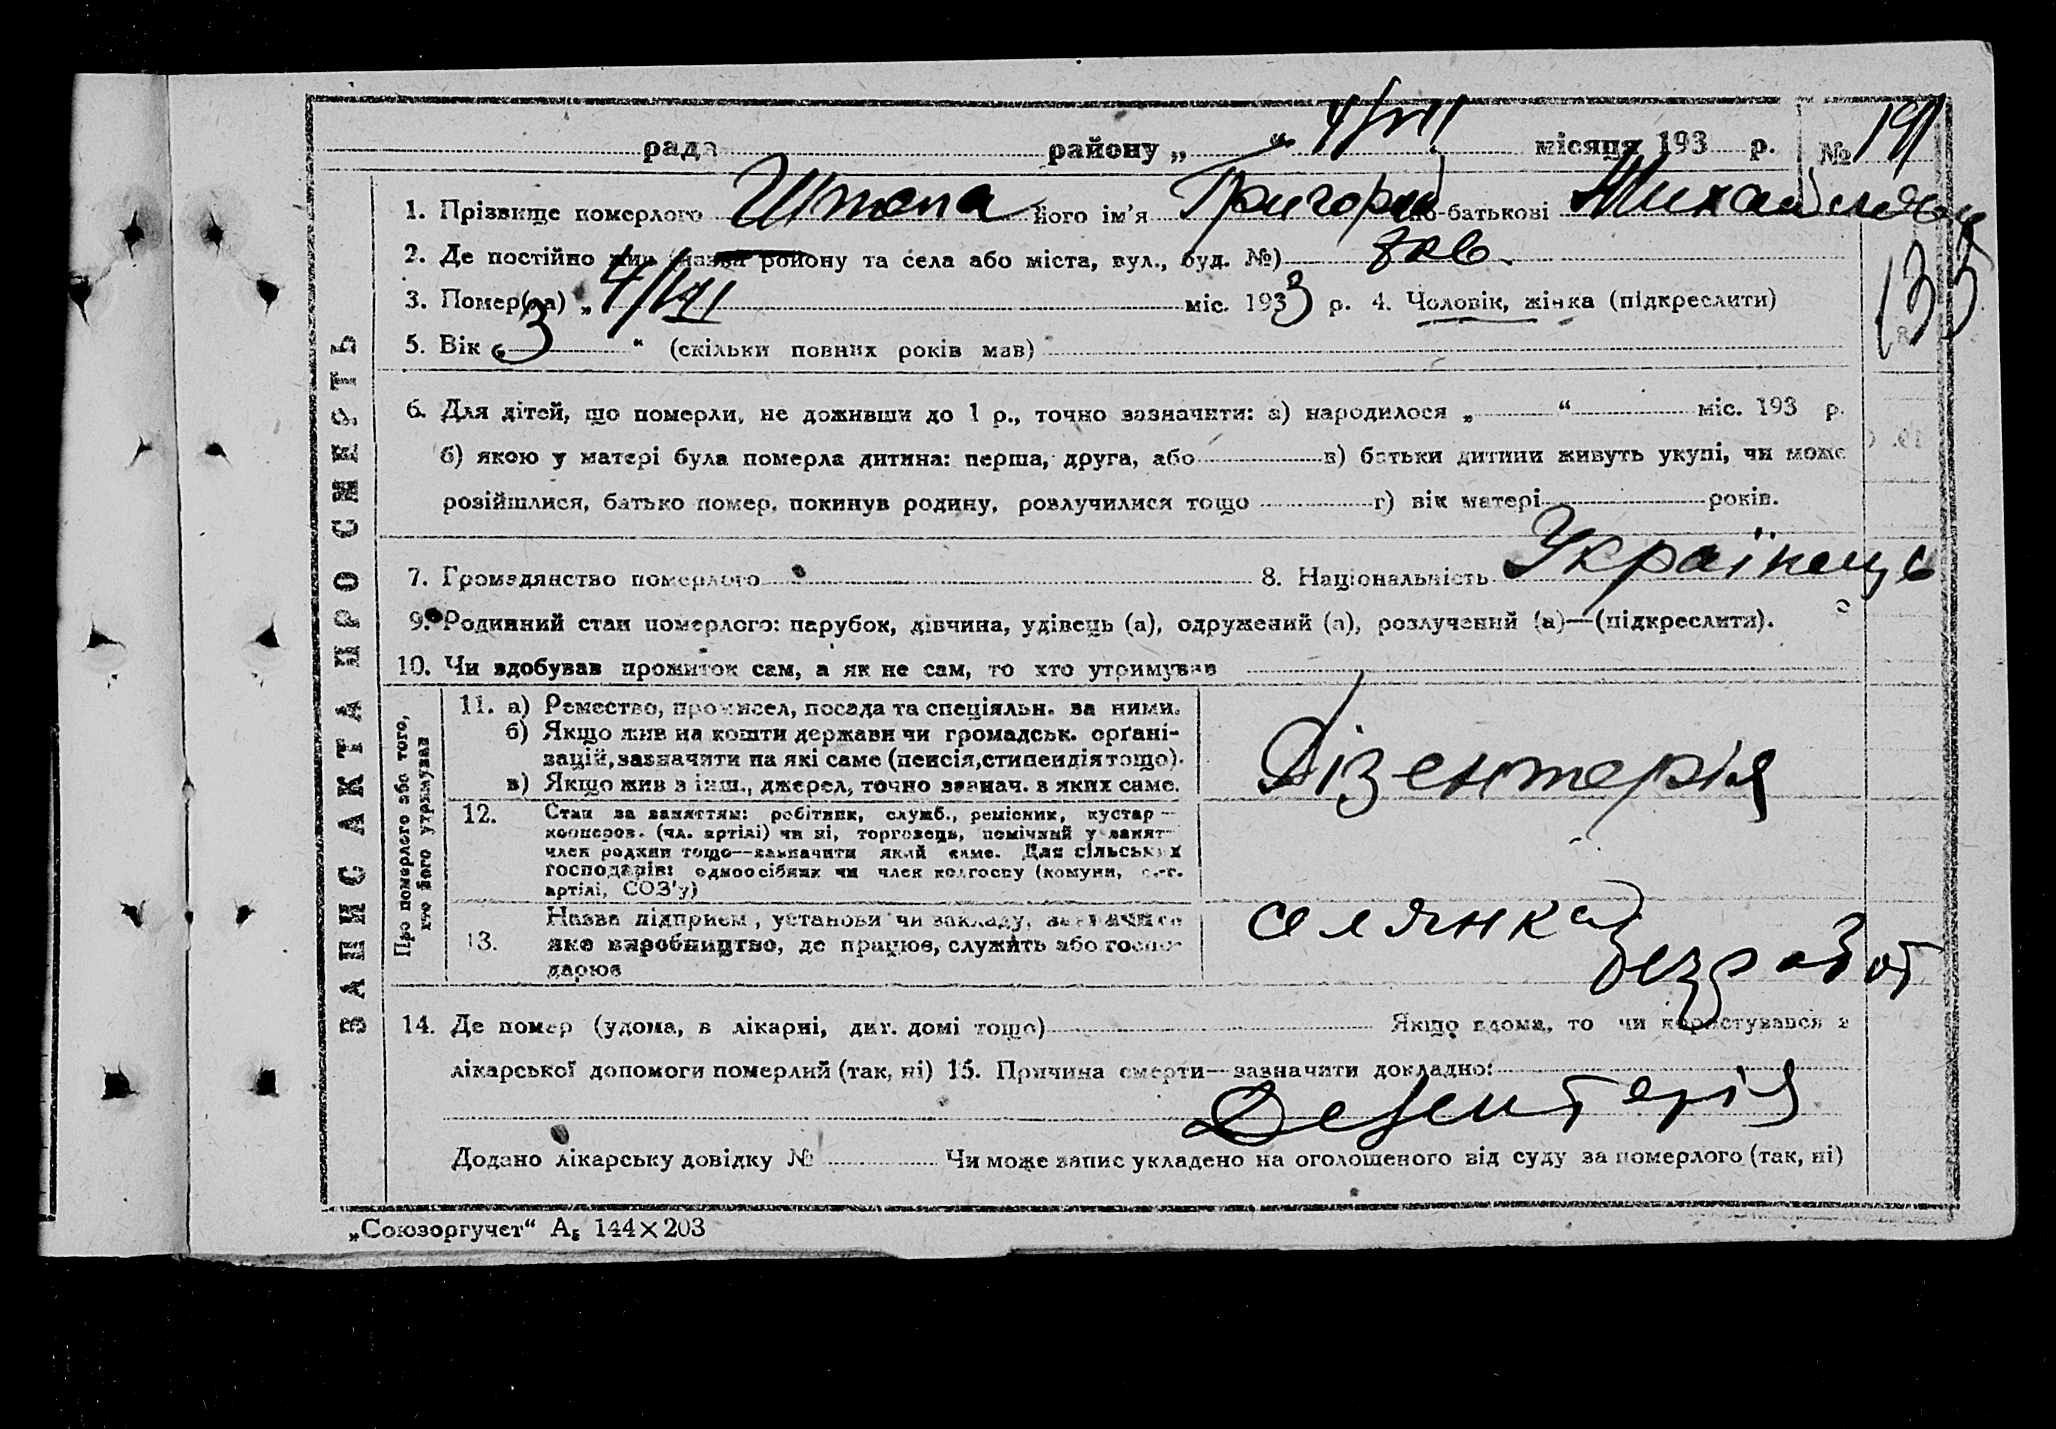 рада району „ “ 4/VII місяця 193 р. № 191
1. Прізвище померлого Штепа його ім'я Григорий по-батькові Михайлович
2. Де постійно жив (назва району та села або міста, вул., буд. №)
3. Помер(ла) „ 4/VII міс. 1933 р. 4. Чоловік, жінка (підкреслити)
135
5. Вік „ 3 “ (скільки повних років мав)
6. Для дітей, що померли, не доживши до 1 р., точно зазначити: а) народилося „ “ міс. 193 р.
б) якою у матері була померла дитина: перша, друга, або в) батьки дитини живуть укупі, чи може
розійшлися, батько помер, покинув родину, розлучилися тощо г) вік матері років.
7. Громадянство померлого 8. Національність Українець
9. Родинний стан померлого: парубок, дівчина, удівець (а), одружений (а), розлучений (а)—(підкреслити).
10. Чи здобував прожиток сам, а як не сам, то хто утримував
ЗАПИС АКТА ПРО СМЕРТЬ
Про померлого або того,
хто його утримував
11. а) Ремество, промисел, посада та спеціяльн. за ними.
б) Якщо жив на кошти держави чи громадськ. орґані-
зацій, зазначити на які саме (пенсія, стипендія тощо).
в) Якщо жив з інш., джерел, точно зазнач. з яких саме.
Дізентерія
12. Стан за заняттям: робітник, служб., ремісник, кустар—
коопероv. (чл. артілі) чи ні, торговець, помічний у занят-
член родини тощо—зазначити який саме. Для сільських
господарів: одноосібник чи член колгоспу (комуни, с.-г.
артілі, СОЗ'у)
13. Назва підприєм., установи чи закладу, зазначити
яке виробництво, де працює, служить або госпо-
дарює
селянка
безработ
14. Де помер (удома, в лікарні, дит. домі тощо) Якщо вдома, то чи користувався з
лікарської допомоги померлий (так, ні) 15. Причина смерти—зазначити докладно:
Дезентерія
Додано лікарську довідку № Чи може запис укладено на оголошеного від суду за померлого (так, ні)
„Союзоргучет“ А5 144×203